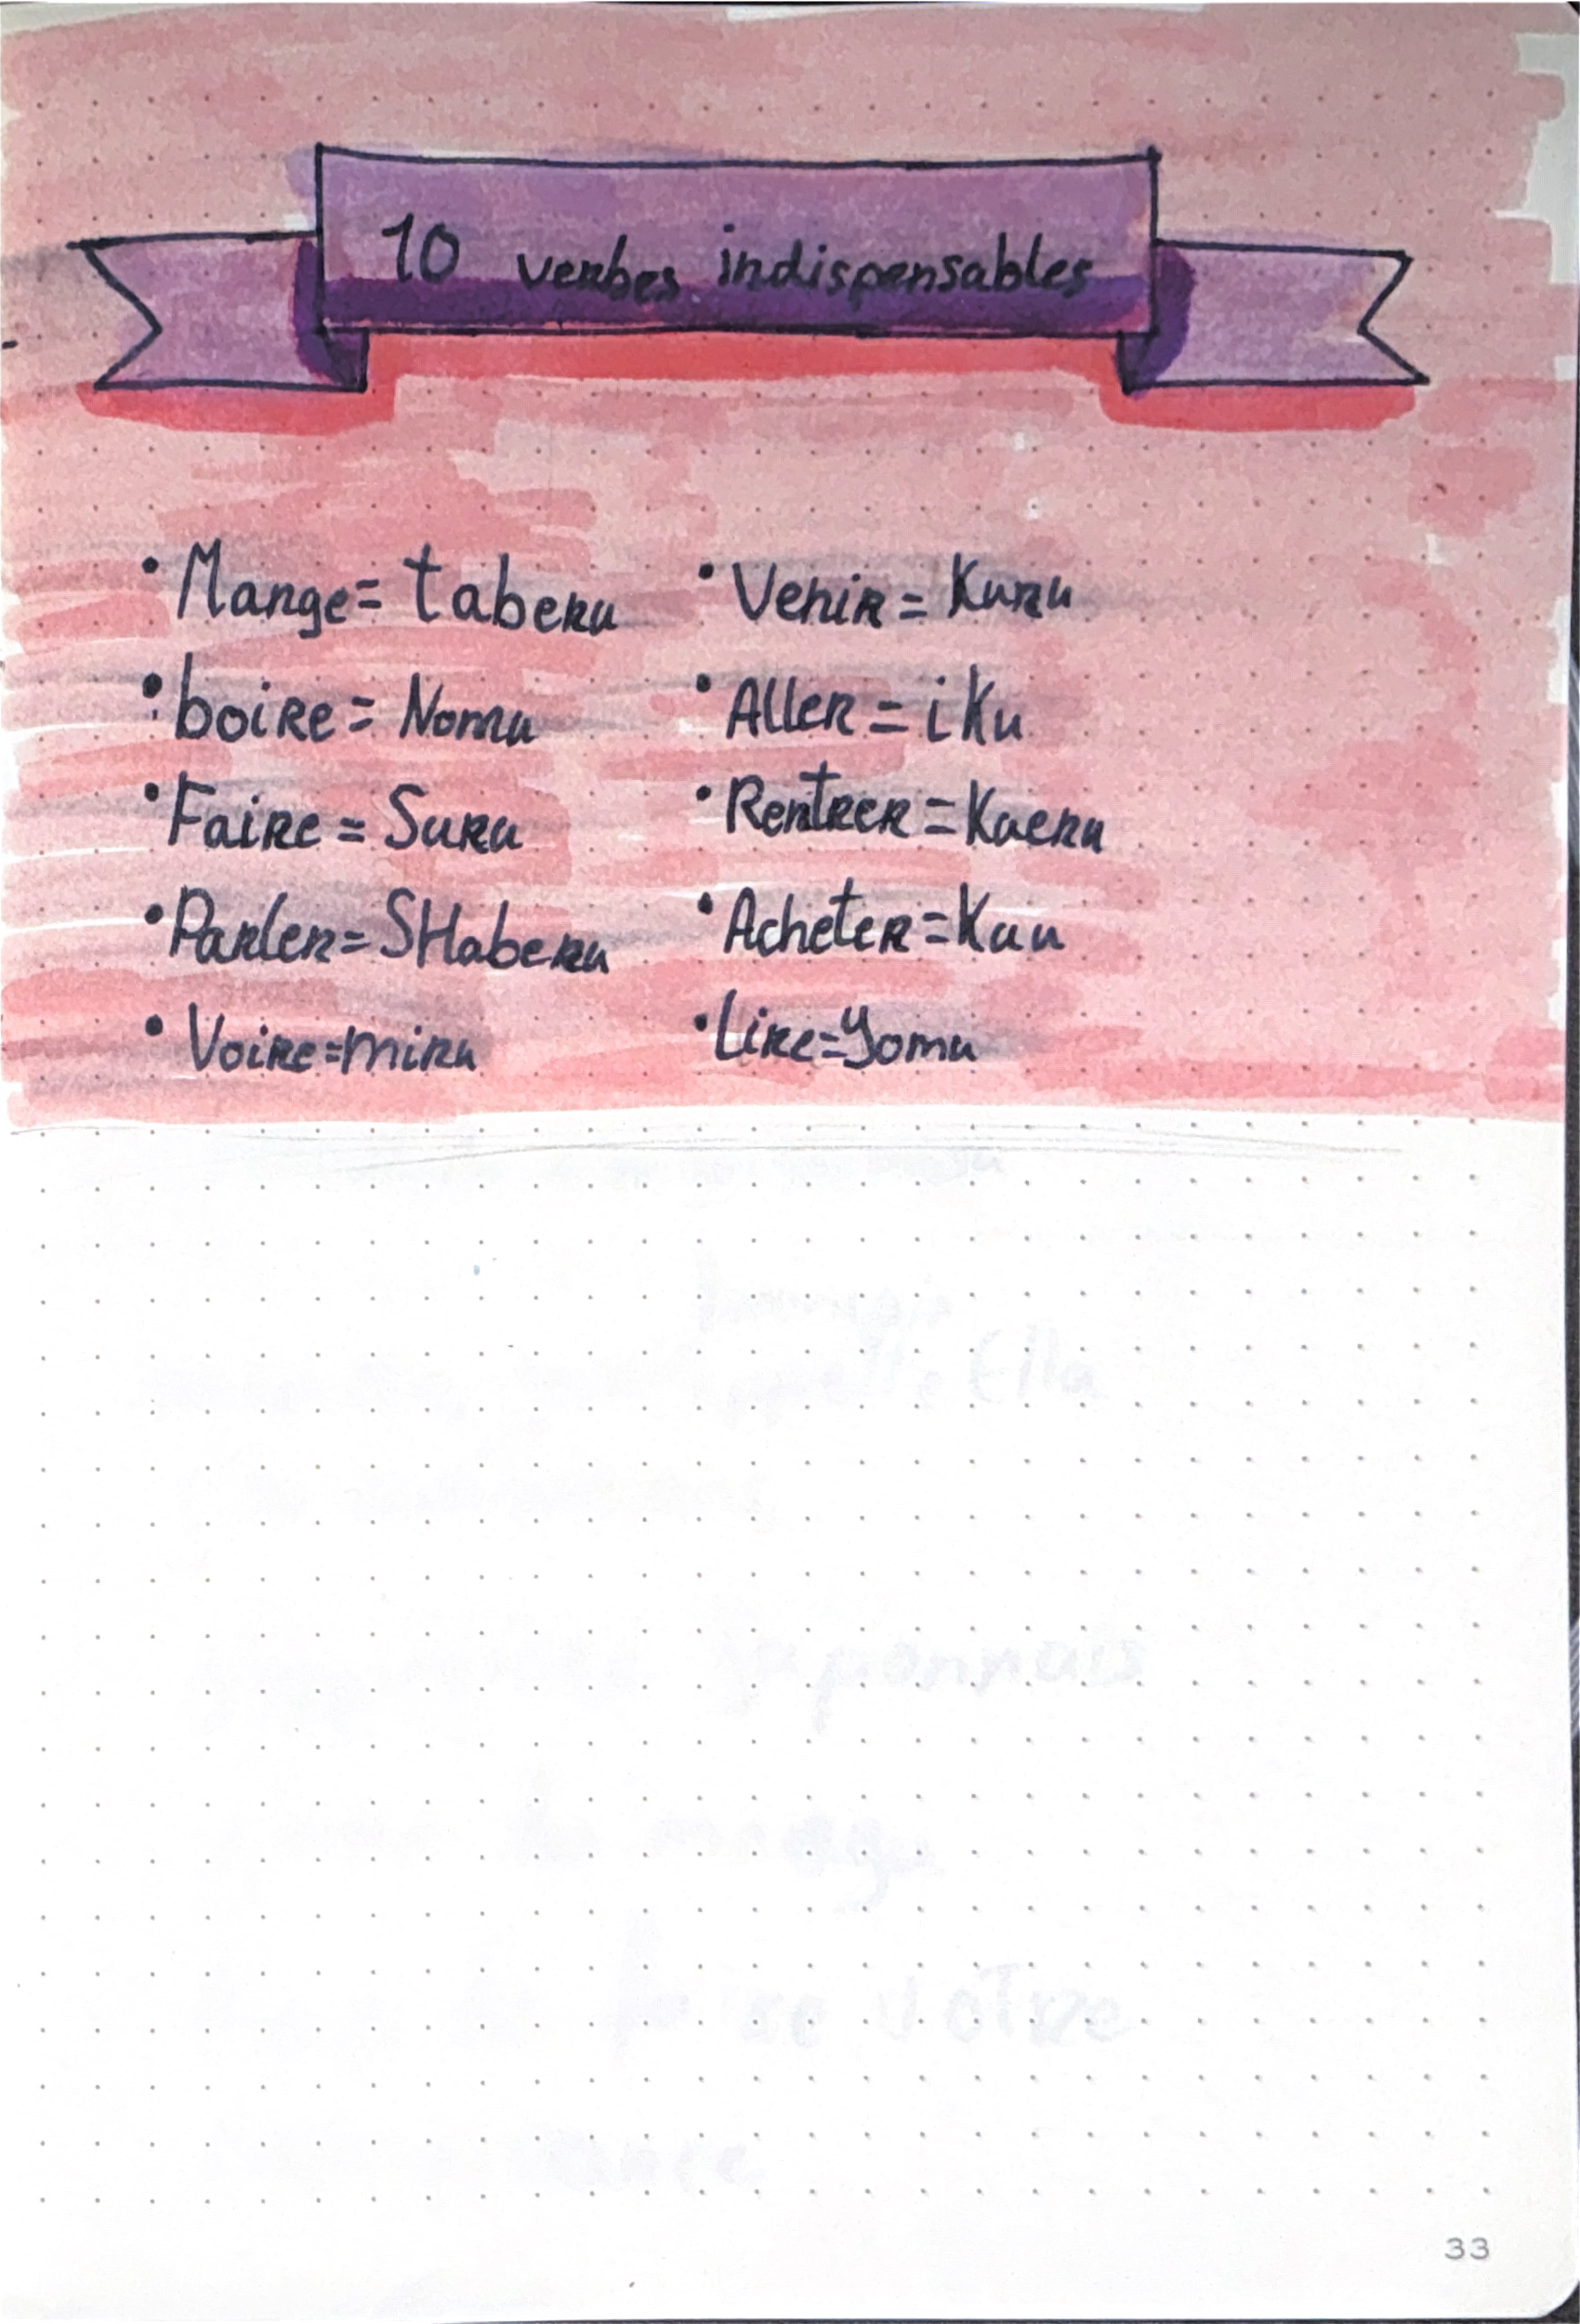 10 verbes indispensables
• Mange = taberu
• Venir = Kuru
• boire = Nomu
• Aller = iKu
• Faire = Suru
• Rentrer = Kaeru
• Parler = SHaberu
• Acheter = Kau
• Voire = miru
• Lire = Yomu
33